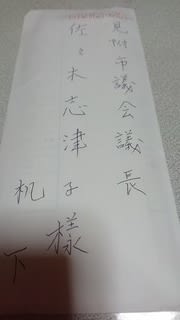 見附市議会議長
佐々木志津子様
机下